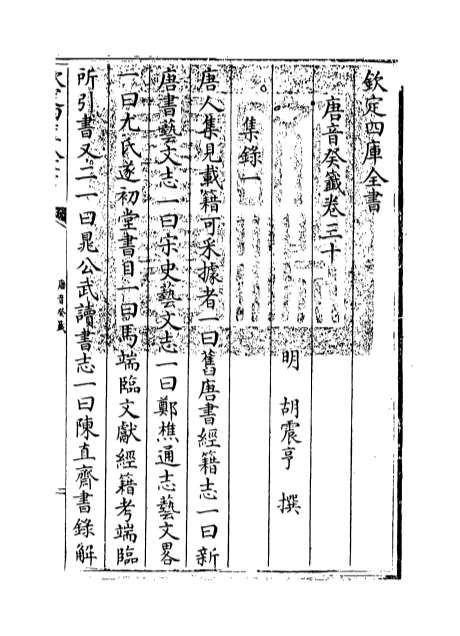 欽定四庫全書
唐音癸籤卷三十
明 胡震亨 撰
集錄一
唐人集見載籍可采據者一曰舊唐書經籍志一曰新
唐書藝文志一曰宋史藝文志一曰鄭樵通志藝文畧
一曰尤氏遂初堂書目一曰馬端臨文獻經籍考端臨
所引書又二一曰晁公武讀書志一曰陳直齋書錄解
唐音癸籤